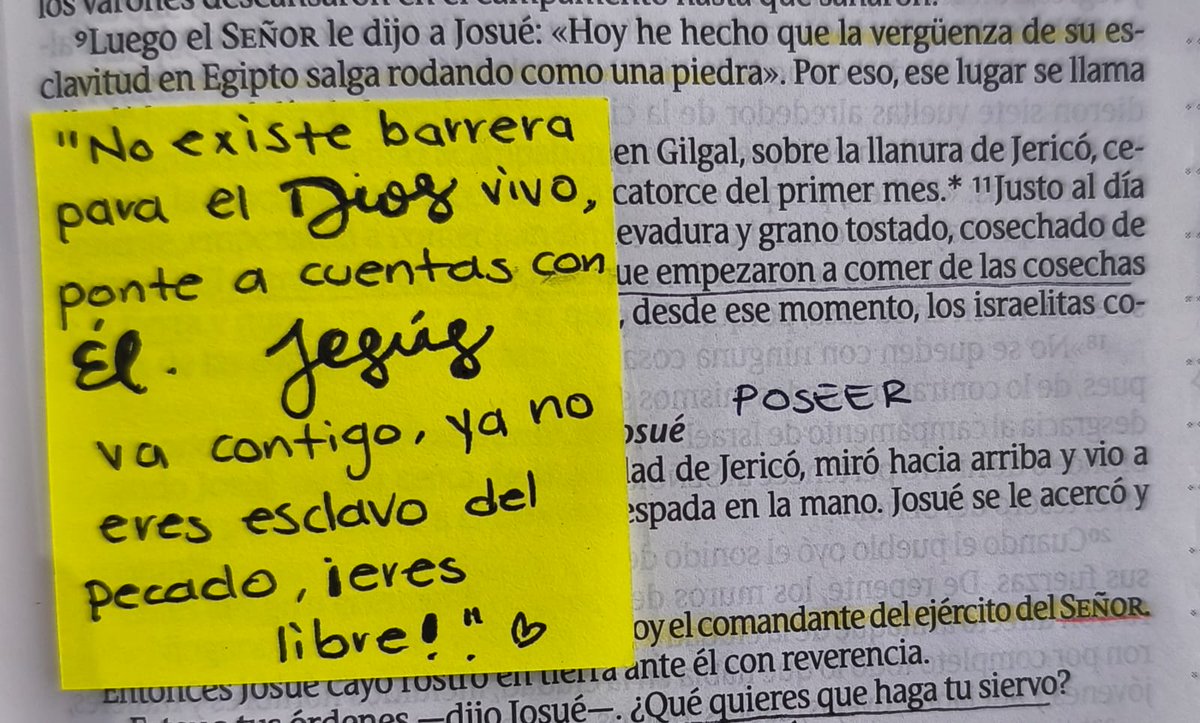 los varones descansaron en el campamento hasta que sanaron.
⁹Luego el SEÑOR le dijo a Josué: «Hoy he hecho que la vergüenza de su es-
clavitud en Egipto salga rodando como una piedra». Por eso, ese lugar se llama
"No existe barrera
para el Dios vivo,
ponte a cuentas con
Él. Jesús
va contigo, ya no
eres esclavo del
pecado, ¡eres
libre!"
en Gilgal, sobre la llanura de Jericó, ce-
catorce del primer mes.* ¹¹Justo al día
evadura y grano tostado, cosechado de
ue empezaron a comer de las cosechas
, desde ese momento, los israelitas co-
POSEER
osué
dad de Jericó, miró hacia arriba y vio a
espada en la mano. Josué se le acercó y
oy el comandante del ejército del SEÑOR.
Entonces Josué cayó rostro en tierra ante él con reverencia.
órdenes —dijo Josué—. ¿Qué quieres que haga tu siervo?